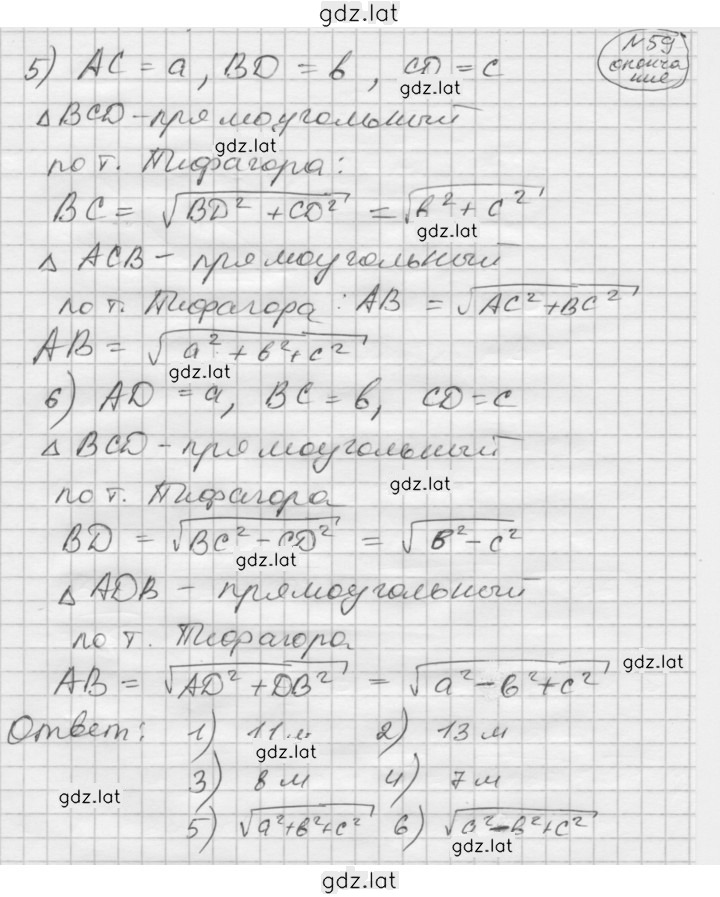 gdz.lat
N59
оконча
ние
5) AC = a, BD = b, CD = c
gdz.lat
Δ BCD - прямоугольный
gdz.lat
по т. Пифагора:
BC = √(BD² + CD²) = √(b² + c²)
gdz.lat
Δ ACB - прямоугольный
по т. Пифагора: AB = √(AC² + BC²)
AB = √(a² + b² + c²)
gdz.lat
6) AD = a, BC = b, CD = c
Δ BCD - прямоугольный
gdz.lat
по т. Пифагора
BD = √(BC² - CD²) = √(b² - c²)
gdz.lat
Δ ADB - прямоугольный
по т. Пифагора
gdz.lat
AB = √(AD² + DB²) = √(a² - b² + c²)
Ответ: 1) 11 м 2) 13 м
gdz.lat
3) 8 м 4) 7 м
gdz.lat
5) √(a² + b² + c²) 6) √(a² - b² + c²)
gdz.lat
gdz.lat